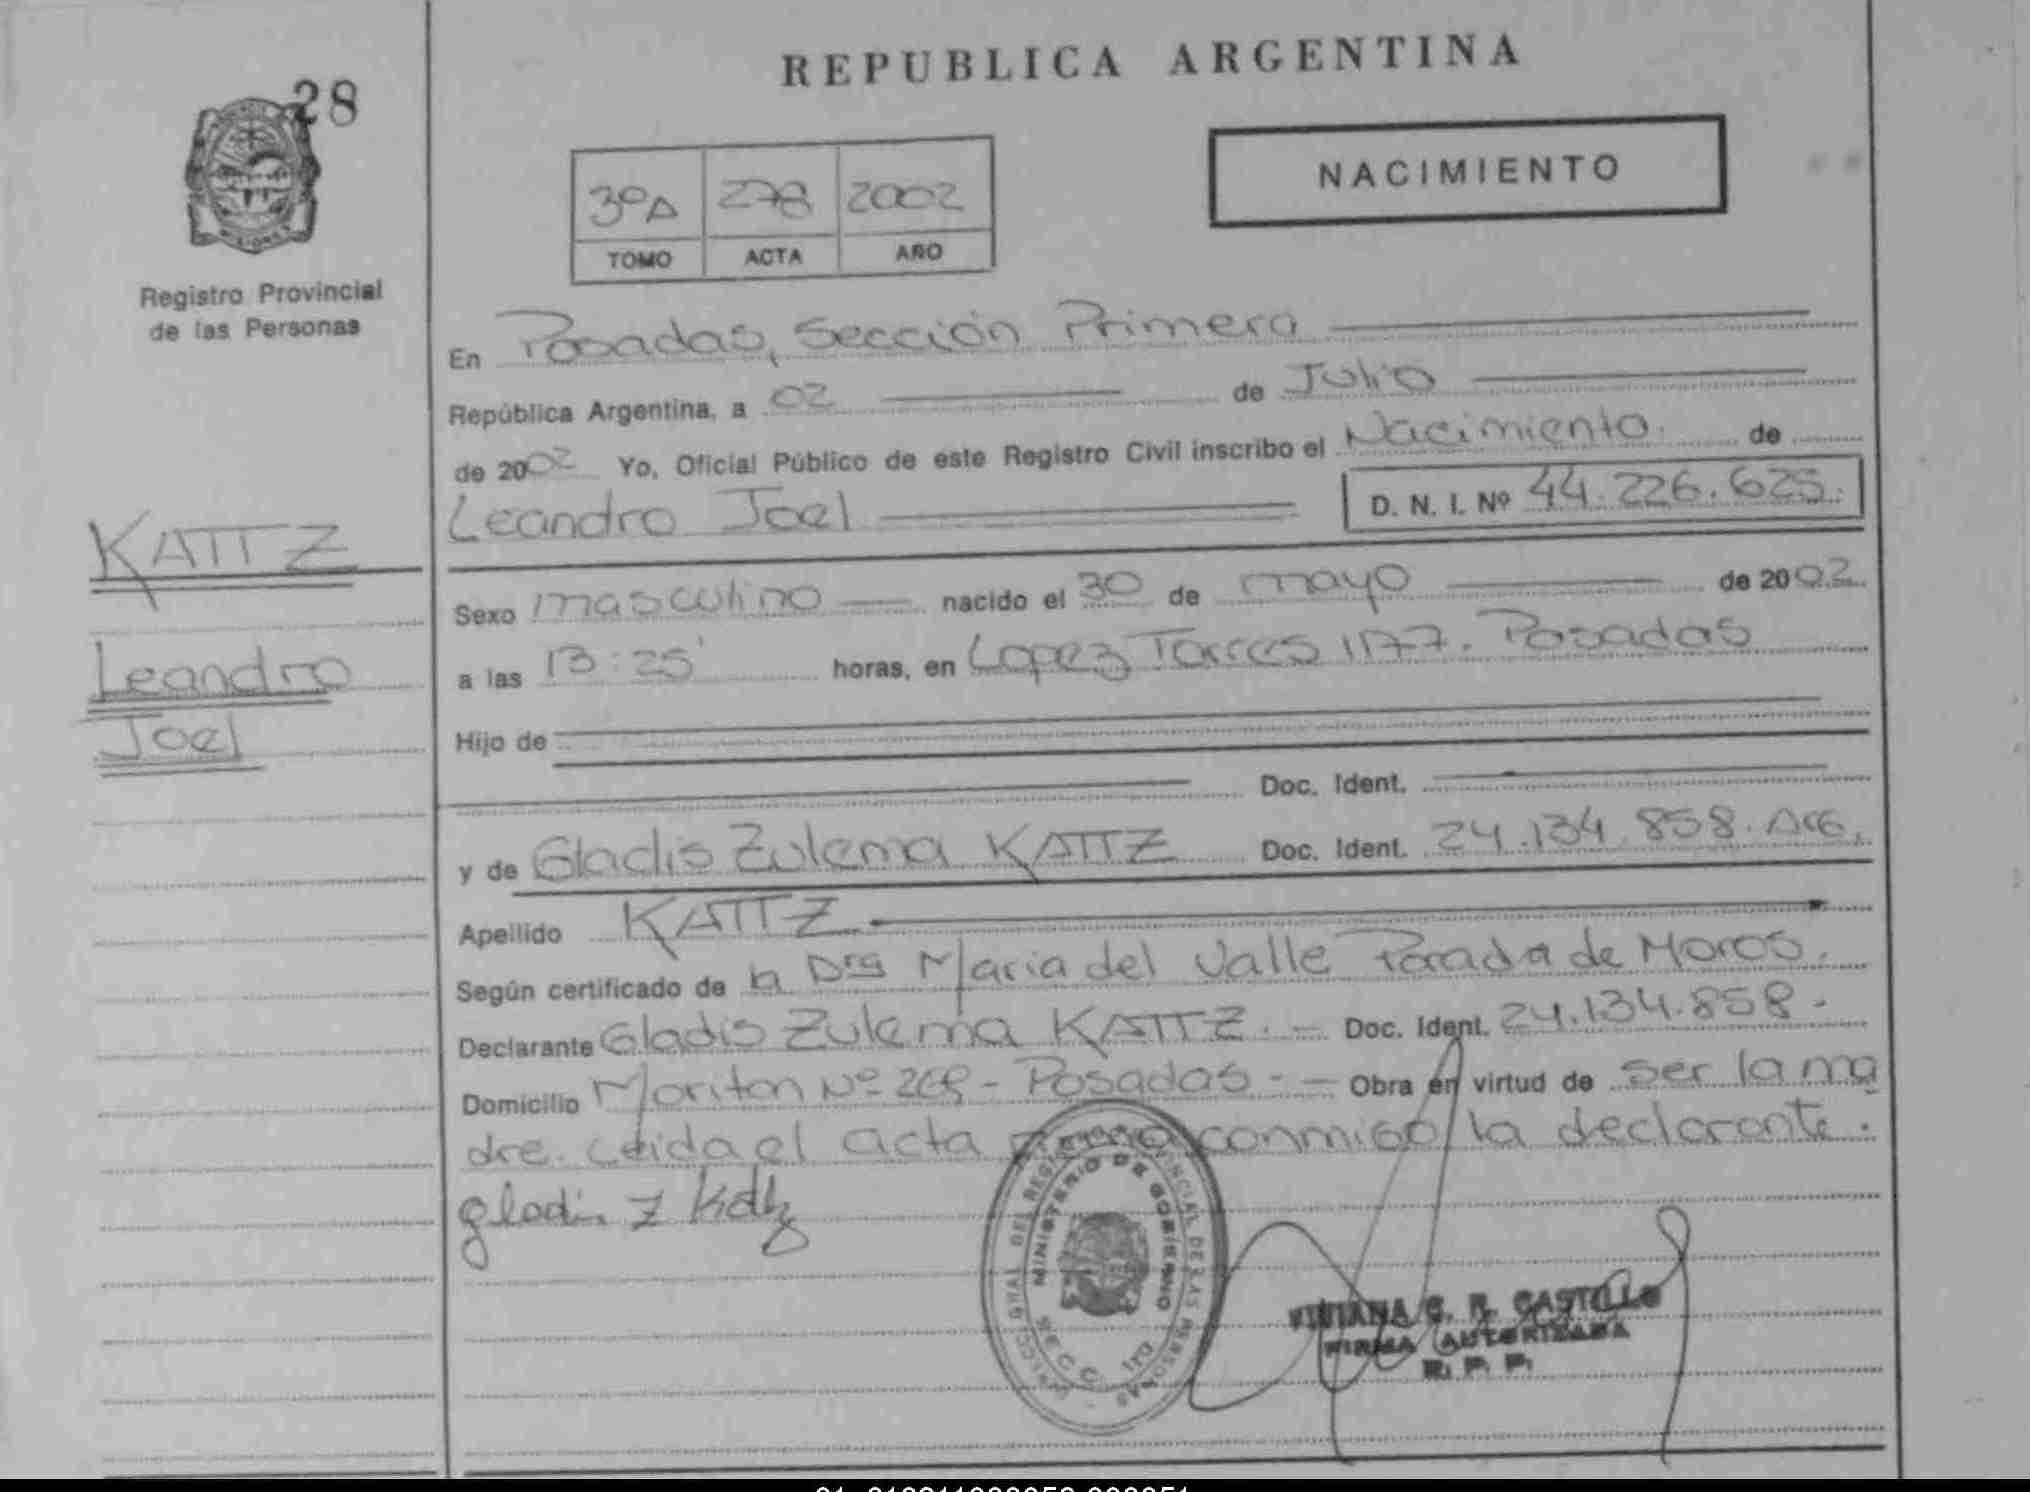 28
Registro Provincial
de las Personas
KATTZ
Leandro
Joel
REPUBLICA ARGENTINA
NACIMIENTO
3º A 278 2002
TOMO ACTA AÑO
En Posadas, Sección Primera
República Argentina, a 02 de Julio
de 2002 Yo, Oficial Público de este Registro Civil inscribo el Nacimiento. de
Leandro Joel D. N. I. Nº 44.226.625.
Sexo masculino nacido el 30 de mayo de 2002
a las 13:25' horas, en Lopez Torres 1177. Posadas
Hijo de
Doc. Ident.
y de Gladis Zulema KATTZ Doc. Ident. 24.134.858. Arg.
Apellido KATTZ
Según certificado de la Dra Maria del Valle Parada de Moros.
Declarante Gladis Zulema KATTZ. - Doc. Ident. 24.134.858.
Domicilio Nº - Posadas - - Obra en virtud de ser la ma
dre. Leida el acta firma conmigo la declarante.
MINISTERIO DE GOBIERNO
SECC. 1ra
VIVIANA C. R. CASTILLO
FIRMA AUTORIZADA
R. P. P.